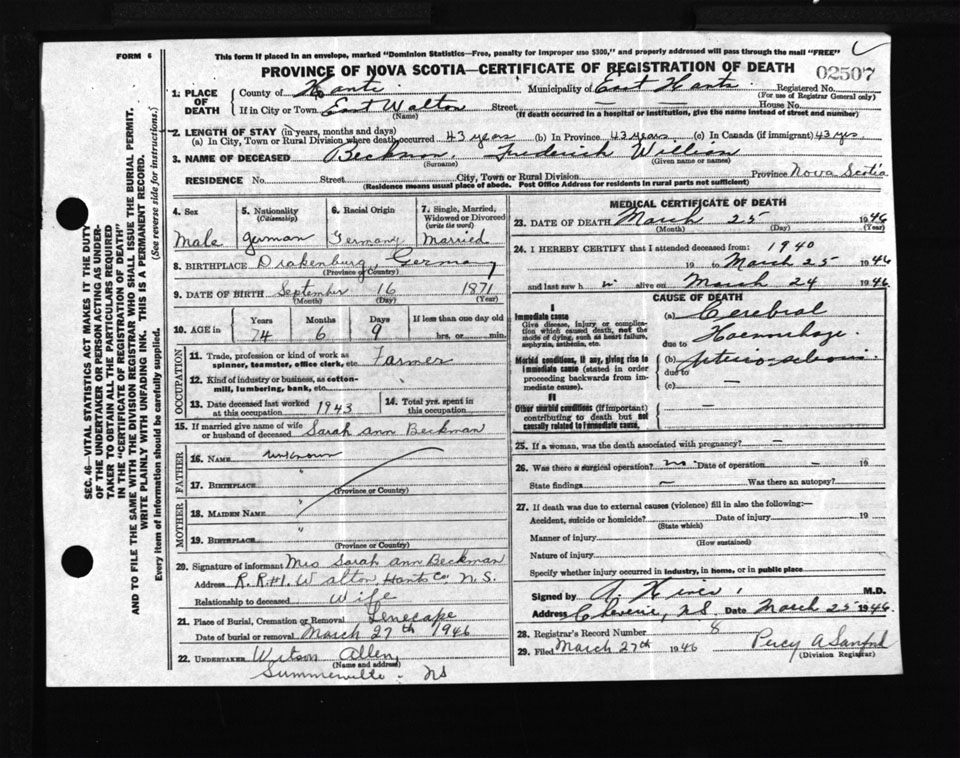 FORM 6
This form if placed in an envelope, marked "Dominion Statistics—Free, penalty for improper use $300," and properly addressed will pass through the mail "FREE"
PROVINCE OF NOVA SCOTIA—CERTIFICATE OF REGISTRATION OF DEATH
02507
1. PLACE OF DEATH County of Hants Municipality of East Hants Registered No.
(For use of Registrar General only)
If in City or Town East Walton Street — — House No.
(Name) (If death occurred in a hospital or institution, give the name instead of street and number)
2. LENGTH OF STAY (in years, months and days)
(a) In City, Town or Rural Division where death occurred 43 years (b) In Province 43 years (c) In Canada (if immigrant) 43 yrs
3. NAME OF DECEASED Beckman, Frederick William
(Surname) (Given name or names)
RESIDENCE No. Street City, Town or Rural Division Province Nova Scotia
(Residence means usual place of abode. Post Office Address for residents in rural parts not sufficient)
SEC. 46—VITAL STATISTICS ACT MAKES IT THE DUTY
OF THE UNDERTAKER OR PERSON ACTING AS UNDER-
TAKER TO OBTAIN ALL THE PARTICULARS REQUIRED
IN THE "CERTIFICATE OF REGISTRATION OF DEATH"
AND TO FILE THE SAME WITH THE DIVISION REGISTRAR WHO SHALL ISSUE THE BURIAL PERMIT.
WRITE PLAINLY WITH UNFADING INK. THIS IS A PERMANENT RECORD.
Every item of information should be carefully supplied. (See reverse side for instructions.)
4. Sex 5. Nationality (Citizenship) 6. Racial Origin 7. Single, Married, Widowed or Divorced (write the word)
Male German Germany Married
8. BIRTHPLACE Drakenburg, Germany
(Province or Country)
9. DATE OF BIRTH September 16 1871
(Month) (Day) (Year)
10. AGE in Years Months Days If less than one day old
74 6 9 hrs. or min.
OCCUPATION
11. Trade, profession or kind of work as spinner, teamster, office clerk, etc. Farmer
12. Kind of industry or business, as cotton-mill, lumbering, bank, etc.
13. Date deceased last worked at this occupation 1943 14. Total yrs. spent in this occupation
15. If married give name of wife or husband of deceased Sarah Ann Beckman
FATHER
16. NAME unknown
17. BIRTHPLACE "
(Province or Country)
MOTHER
18. MAIDEN NAME "
19. BIRTHPLACE "
(Province or Country)
20. Signature of informant Mrs Sarah Ann Beckman
Address R.R#1. Walton, Hants Co. N.S.
Relationship to deceased Wife
21. Place of Burial, Cremation or Removal
Date of burial or removal March 27th 1946
22. UNDERTAKER Watson Allen,
(Name and address)
Summerville. NS
MEDICAL CERTIFICATE OF DEATH
23. DATE OF DEATH March 25 1946
(Month) (Day) (Year)
24. I HEREBY CERTIFY that I attended deceased from: 1940
19 to March 25 1946
and last saw h im alive on March 24 1946
CAUSE OF DEATH
I
Immediate cause
Give disease, injury or complication which caused death, not the mode of dying, such as heart failure, asphyxia, asthenia, etc.
(a) Cerebral
Haemorrhage.
due to
Morbid conditions, if any, giving rise to immediate cause (stated in order proceeding backwards from immediate cause).
(b)
due to
(c) —
II
Other morbid conditions (if important) contributing to death but not causally related to immediate cause.
—
25. If a woman, was the death associated with pregnancy? —
26. Was there a surgical operation? no Date of operation — 19
State findings — Was there an autopsy?
27. If death was due to external causes (violence) fill in also the following:—
Accident, suicide or homicide? Date of injury 19
(State which)
Manner of injury
(How sustained)
Nature of injury
Specify whether injury occurred in industry, in home, or in public place
Signed by M.D.
Address Cheverie, N.S. Date March 25 1946.
28. Registrar's Record Number 8
29. Filed March 27th 1946 Percy A Sanford
(Division Registrar)